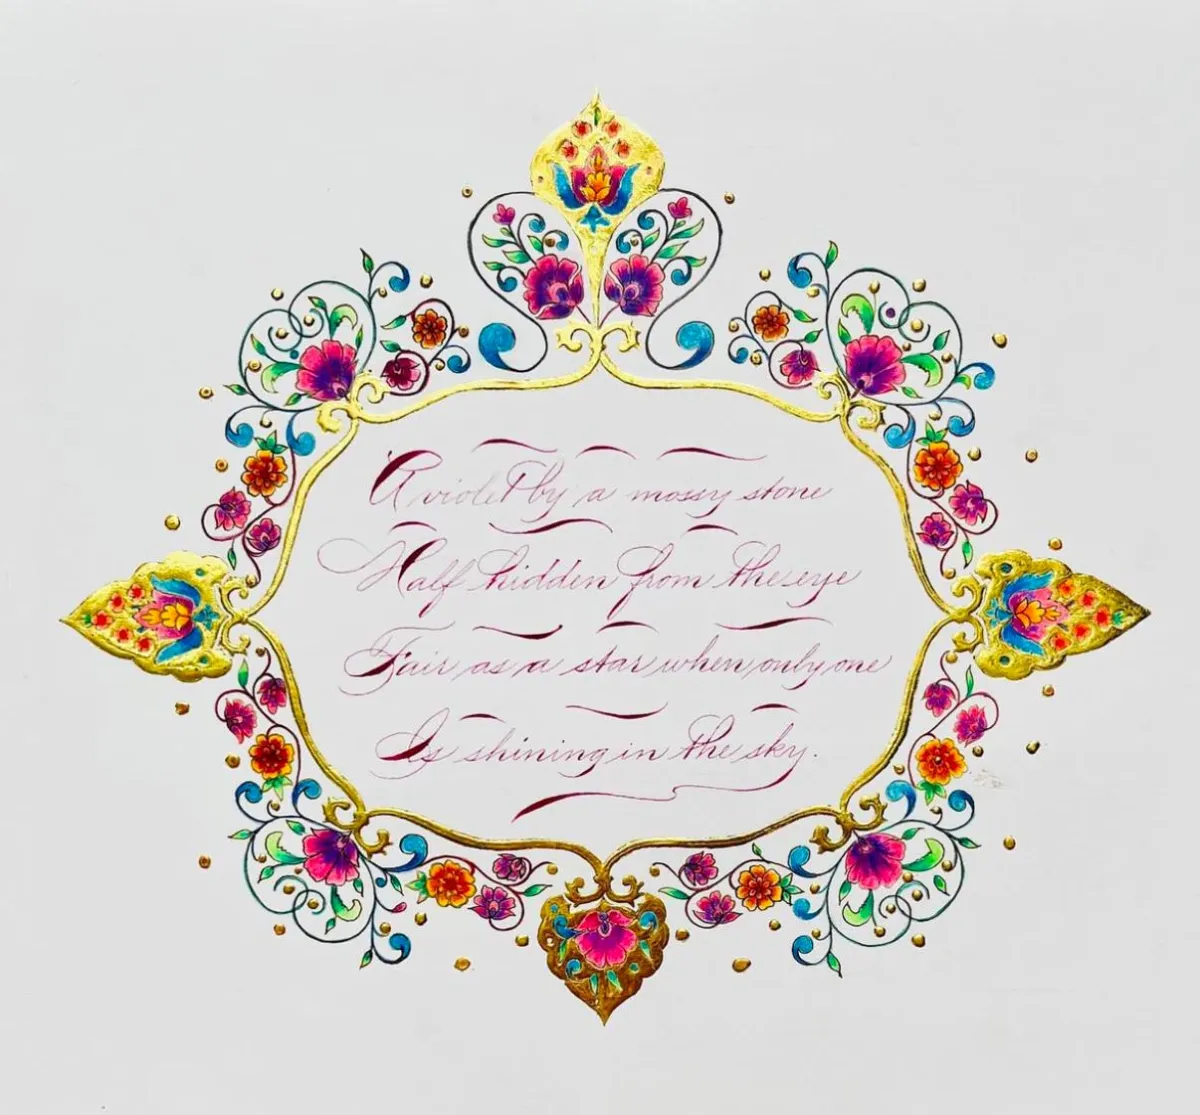 A violet by a mossy stone
Half hidden from the eye
Fair as a star when only one
Is shining in the sky.